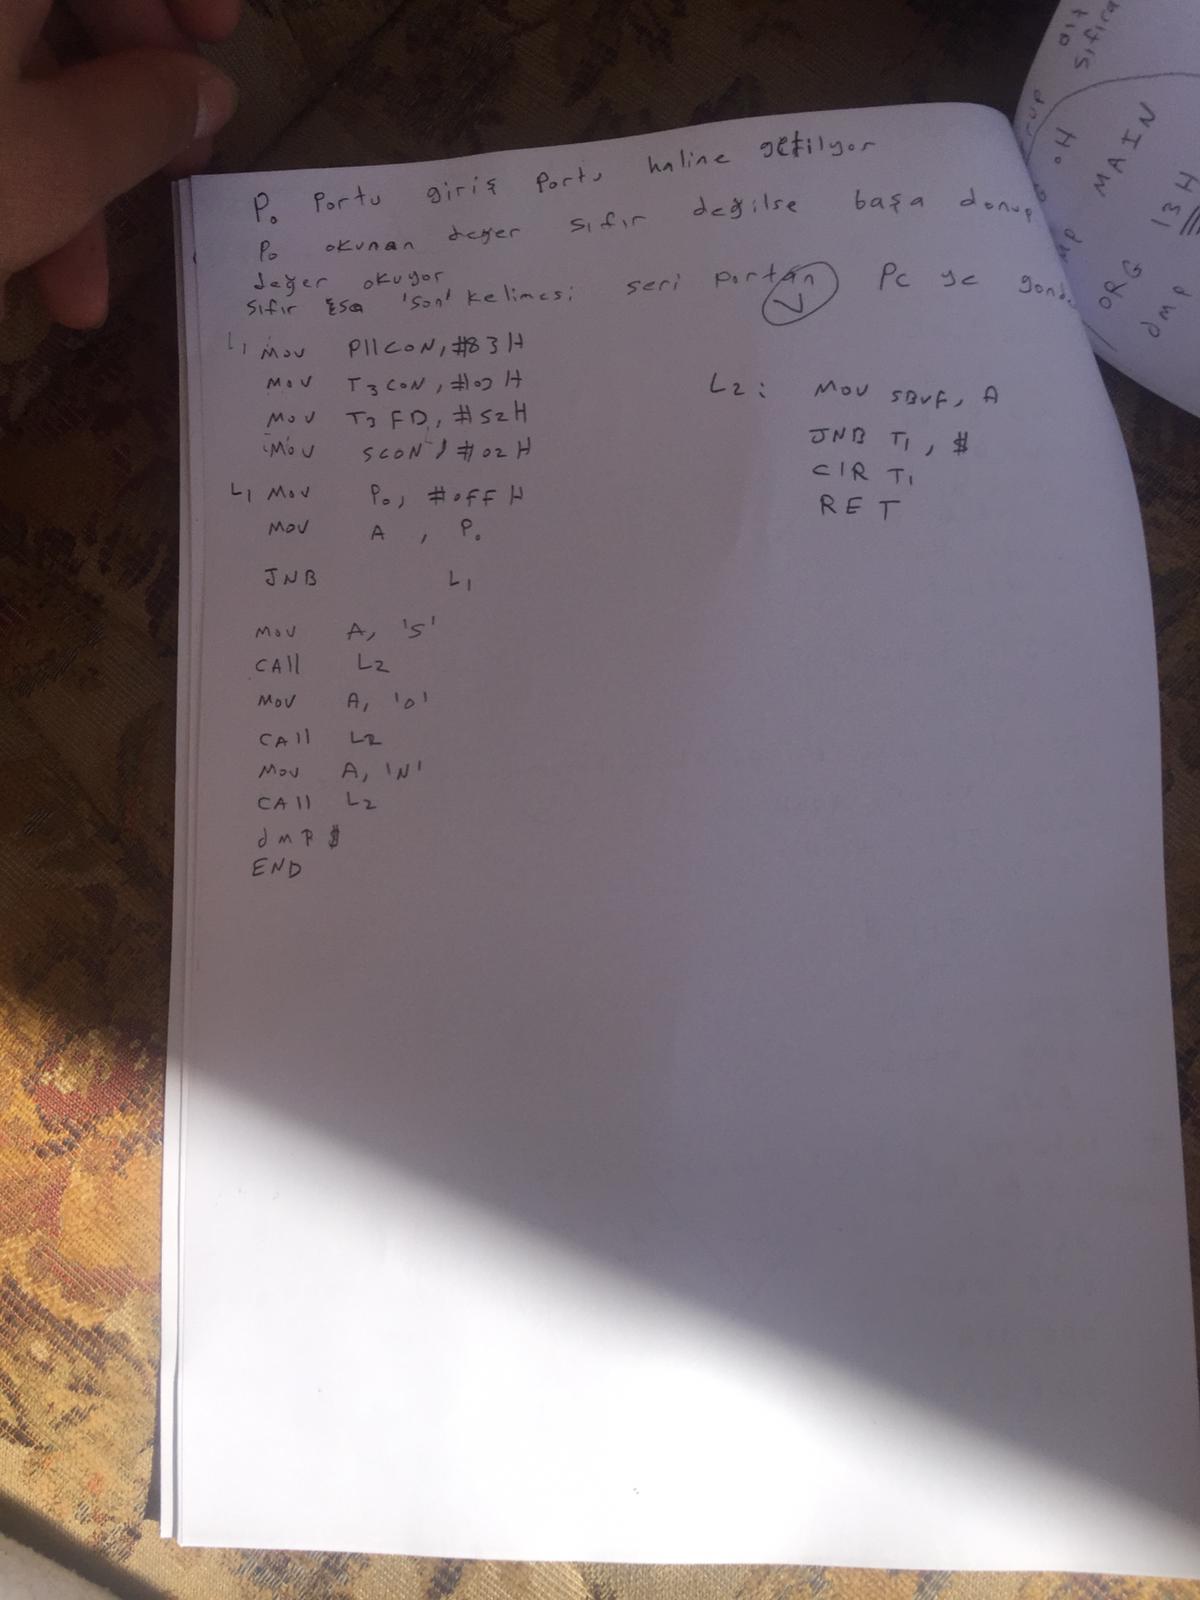 P0 Portu giriş Portu haline getiliyor
P0 okunan değer sıfır değilse başa donup
değer okuyor
sıfır ise 'son' kelimesi seri portan Pc ye gonde
L1 Mov PllCON, #83H
Mov T3CON, #02H
Mov T3FD, #52H
Mov SCON, #02H
L1 Mov P0, #0FFH
Mov A, P0
JNB L1
Mov A, 'S'
CAll L2
Mov A, 'O'
CAll L2
Mov A, 'N'
CAll L2
JmP $
END
L2: Mov SBUF, A
JNB T1, $
ClR T1
RET
sıfıra
0H
MAIN
ORG 13H
JmP